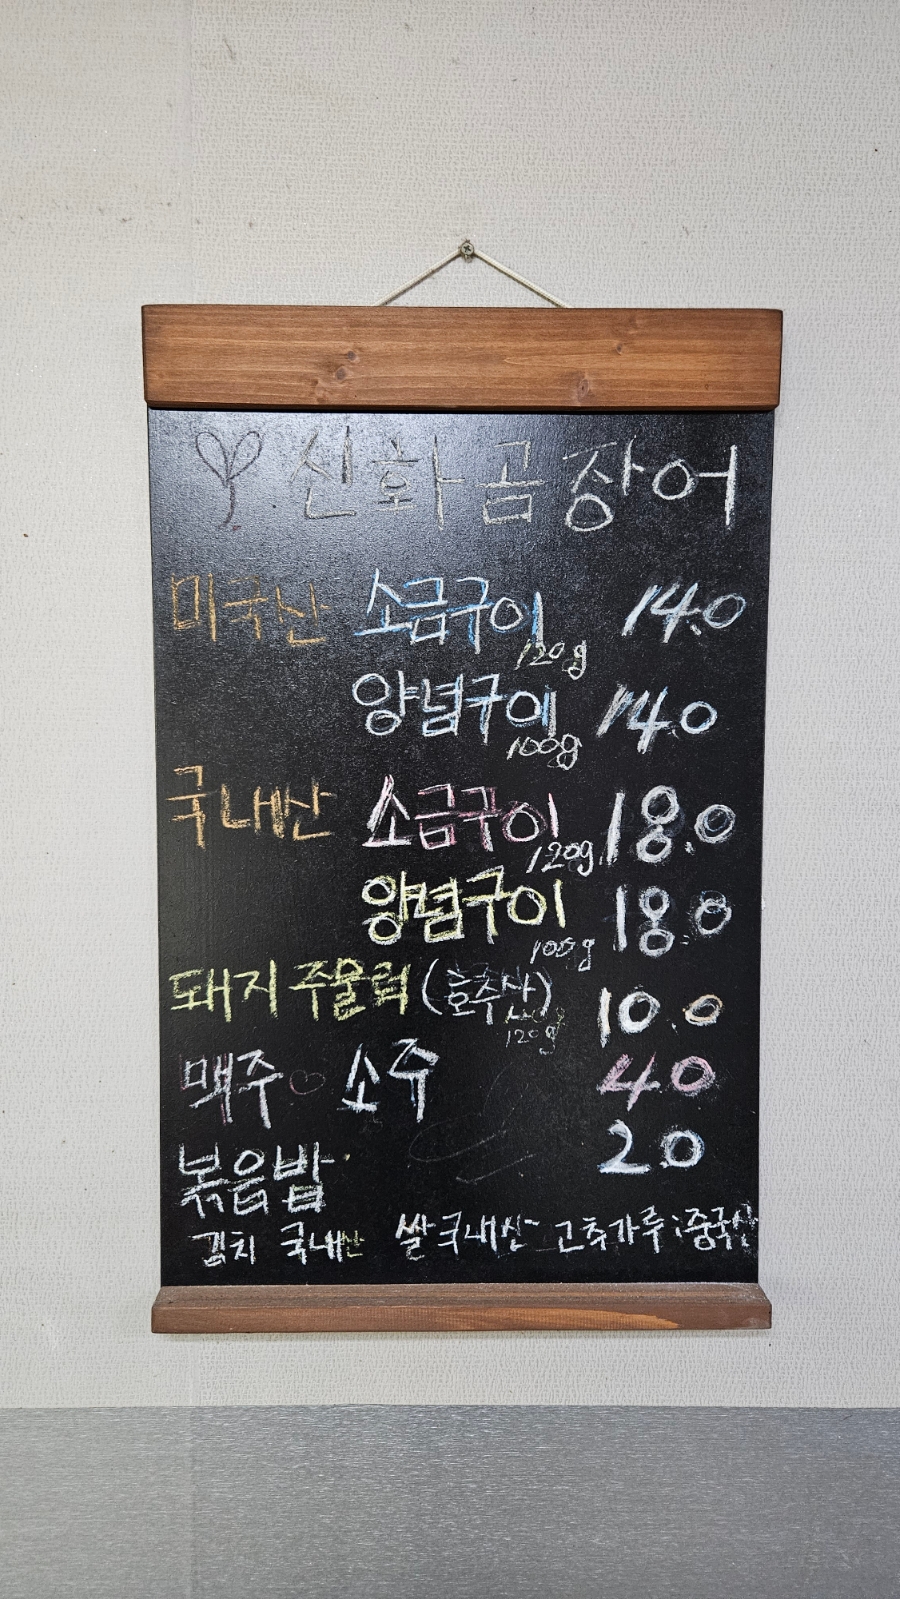 신화곰장어
미국산 소금구이 14.0
120g
양념구이 14.0
100g
국내산 소금구이 18.0
120g
양념구이 18.0
100g
돼지주물럭(호주산) 10.0
120g
맥주♡소주 4.0
볶음밥 2.0
김치 국내산 쌀국내산 고추가루:중국산